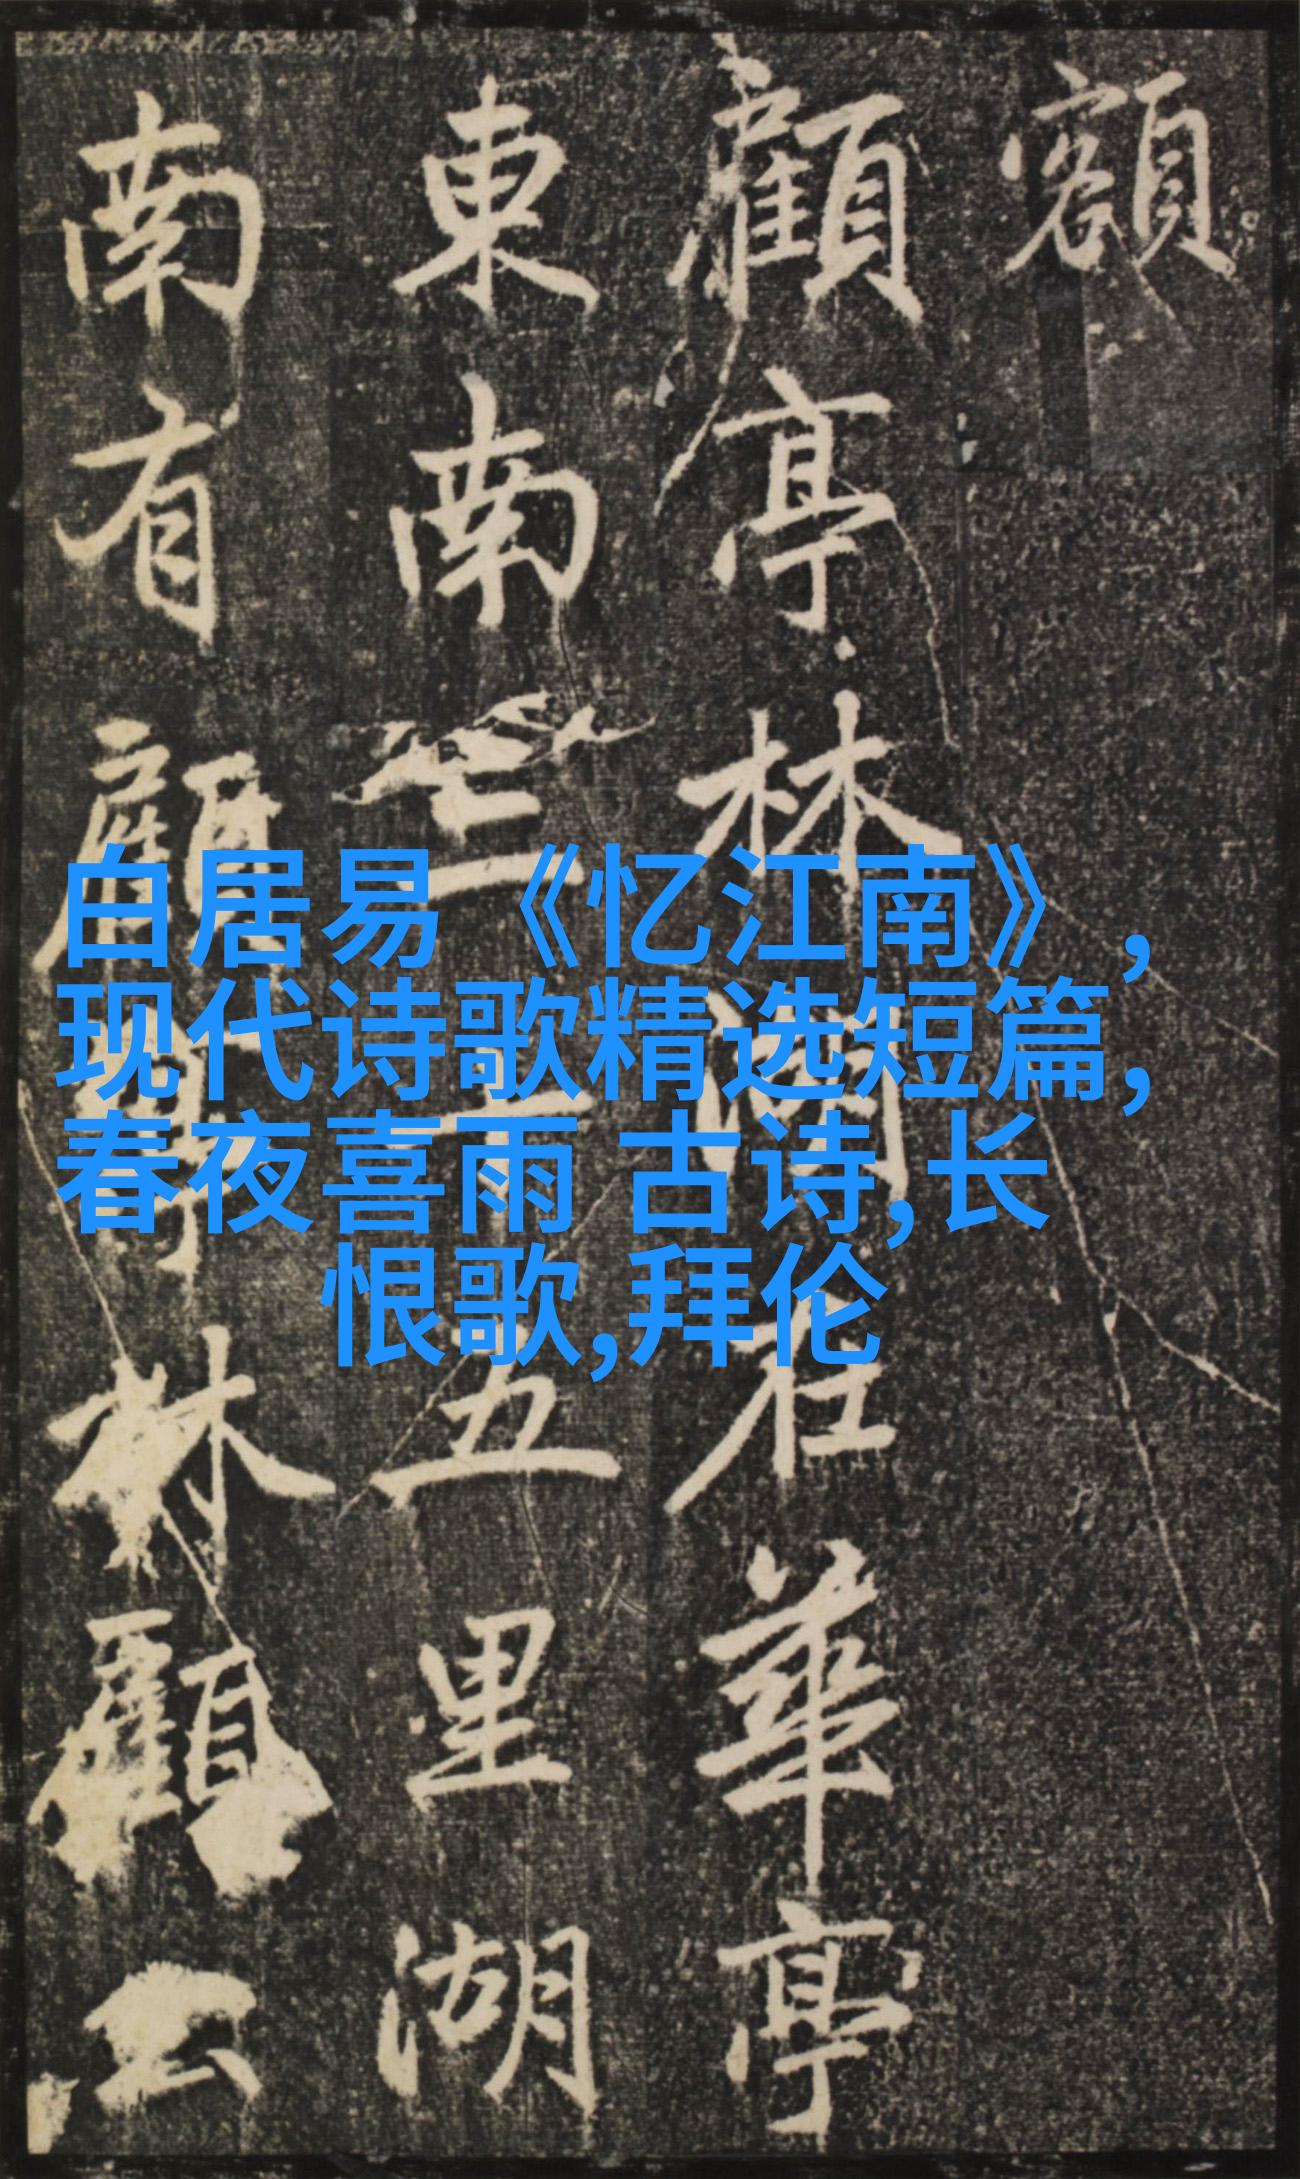 額
顧亭林湖在華亭
東南三十五里湖
南有顧野林顧公
白居易《忆江南》,
现代诗歌精选短篇,
春夜喜雨 古诗,长
恨歌,拜伦